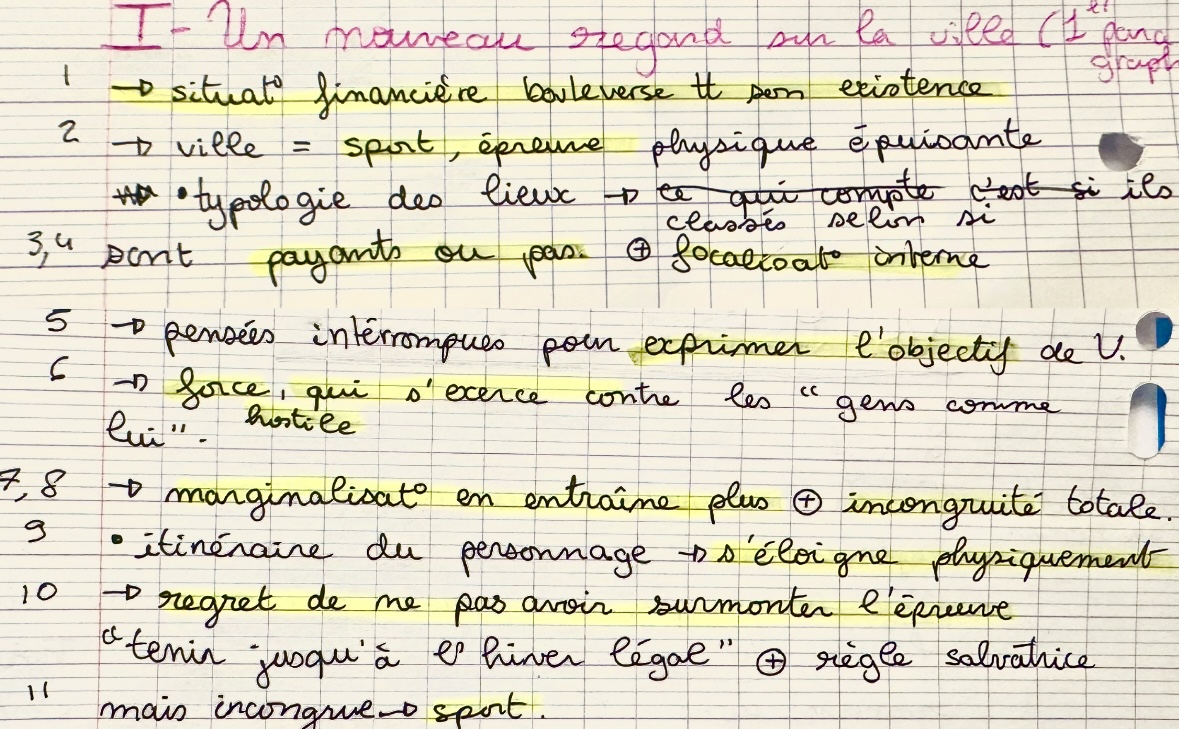 I - Un nouveau regard sur la ville (1er parag
graph
1 → situat° financière bouleverse tt son existence
2 → ville = sport, épreuve physique épuisante
• typologie des lieux → ce qui compte c'est si ils
classés selon si
3,4 sont payants ou pas. ⊕ focalisat° interne
5 → pensées intérrompues pour exprimer l'objectif de V.
6 → force, qui s'exerce contre les "gens comme
hostile
lui".
7,8 → marginalisat° en entraîne plus ⊕ incongruité totale.
9 • itinéraire du personnage → s'éloigne physiquement
10 → regret de ne pas avoir surmonter l'épreuve
"tenir jusqu'à l'hiver légal" ⊕ règle salvatrice
11 mais incongrue → sport.